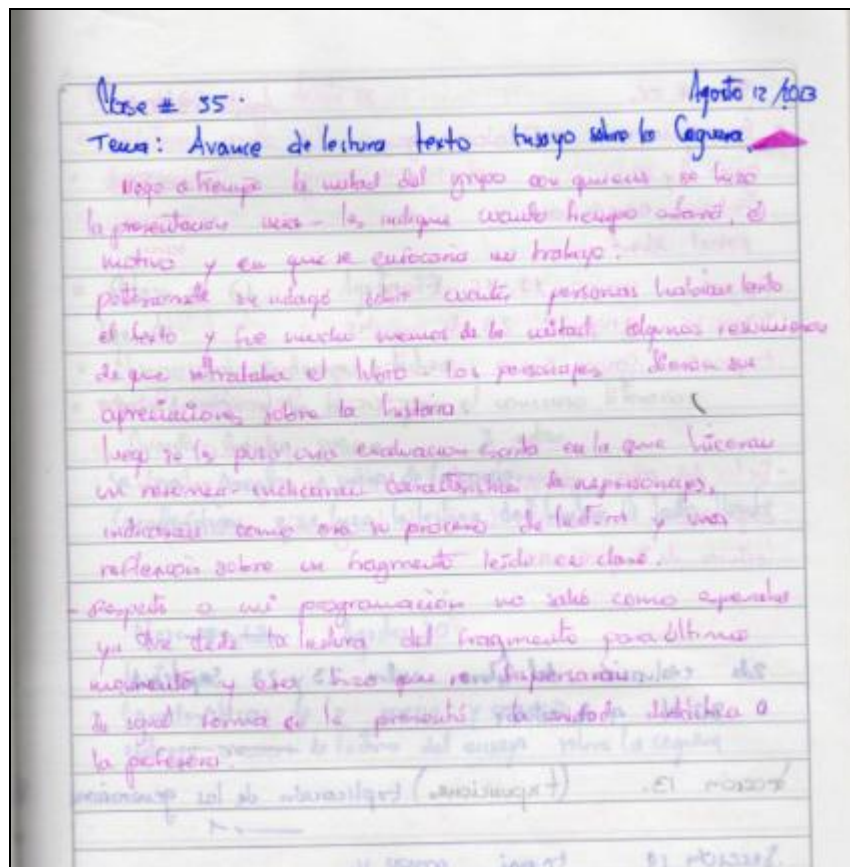 Clase # 35. Agosto 12 / 2013
Tema: Avance de lectura texto Ensayo sobre la Ceguera
llego a tiempo la mitad del grupo con quienes se hizo
la presentación les indique cuanto tiempo estaré, el
motivo y en que se enfocaría mi trabajo.
se indagó sobre cuantas personas habían leido
el texto y fue mucho menos de la mitad. algunos resumieron
de que se trataba el libro - los personajes. Dieron sus
apreciaciones sobre la historia
luego se les puso una evaluacion escrita en la que hicieran
un resumen - indicaran caracteristicas de personajes,
indicaran como era su proceso de lectura y una
reflexion sobre un fragmento leído en clase.
- Respecto a mi programación no salió como esperaba
ya que deje la lectura del fragmento para último
momento y eso hizo que se dispersaran
de igual forma le presenté la unidad didáctica a
la profesora.
Sección 13. (exposicione.) explicación de las